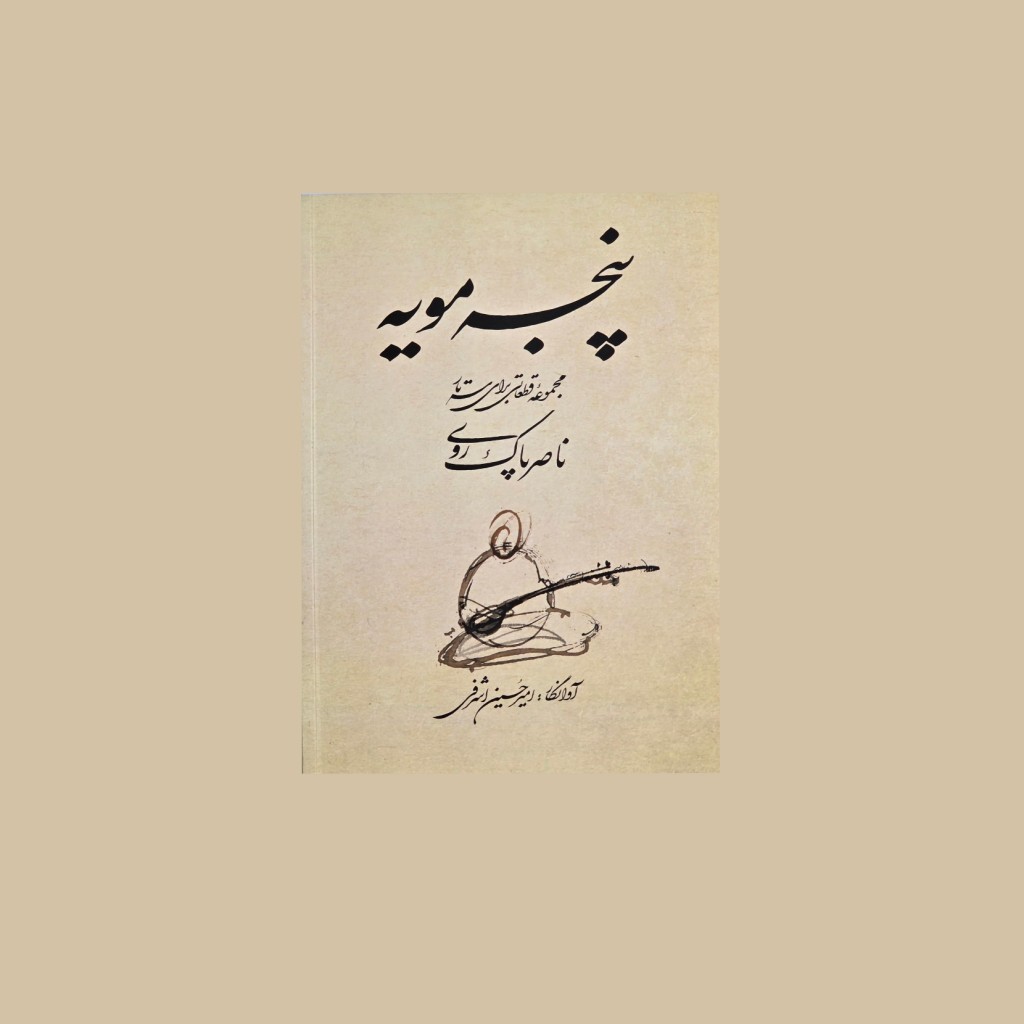 پنجه مویه
مجموعهٔ قطعاتی برای سه‌تار
ناصر پاک روی
آوانگار: امیرحسین اشرفی